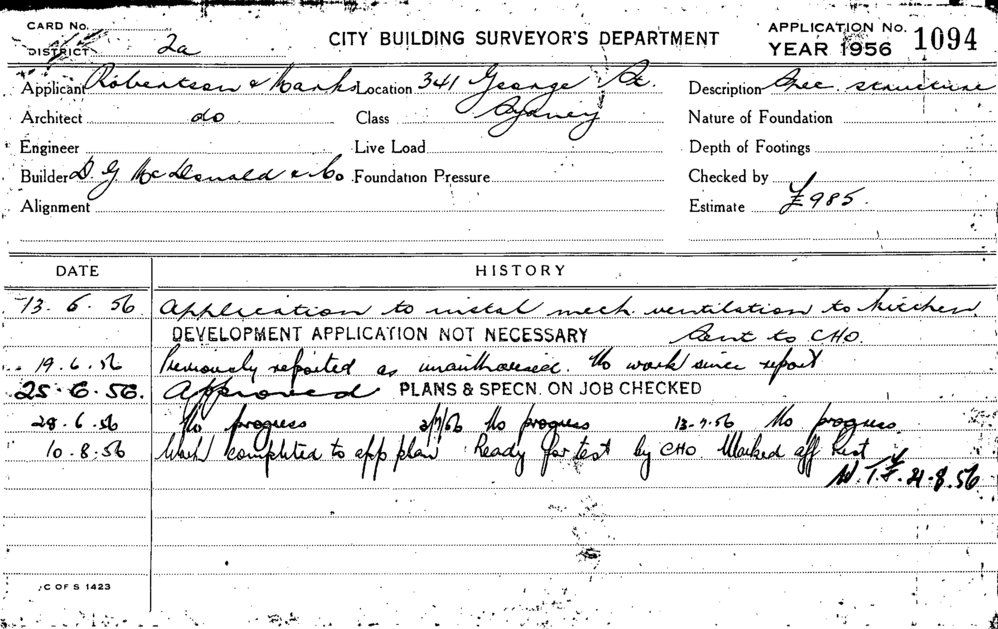 CARD No. APPLICATION No. 1094
DISTRICT 2a CITY BUILDING SURVEYOR'S DEPARTMENT YEAR 1956
Applicant Robertson & Marks Location 341 George St. Description Spec. structure
Architect do Class Sydney Nature of Foundation
Engineer Live Load Depth of Footings
Builder D. G. McDonald & Co Foundation Pressure Checked by
Alignment Estimate £985.
DATE HISTORY
13. 6. 56 Application to instal mech. ventilation to kitchen
DEVELOPMENT APPLICATION NOT NECESSARY Sent to CHO.
19. 6. 56 Previously reported as unauthorised. No work since report
25. 6. 56. Approved PLANS & SPECN. ON JOB CHECKED
28. 6. 56 No progress 3/7/56 No progress 13. 7. 56 No progress
10. 8. 56 Work completed to app plan Ready for test by CHO Marked off list
21. 8. 56
C OF S 1423